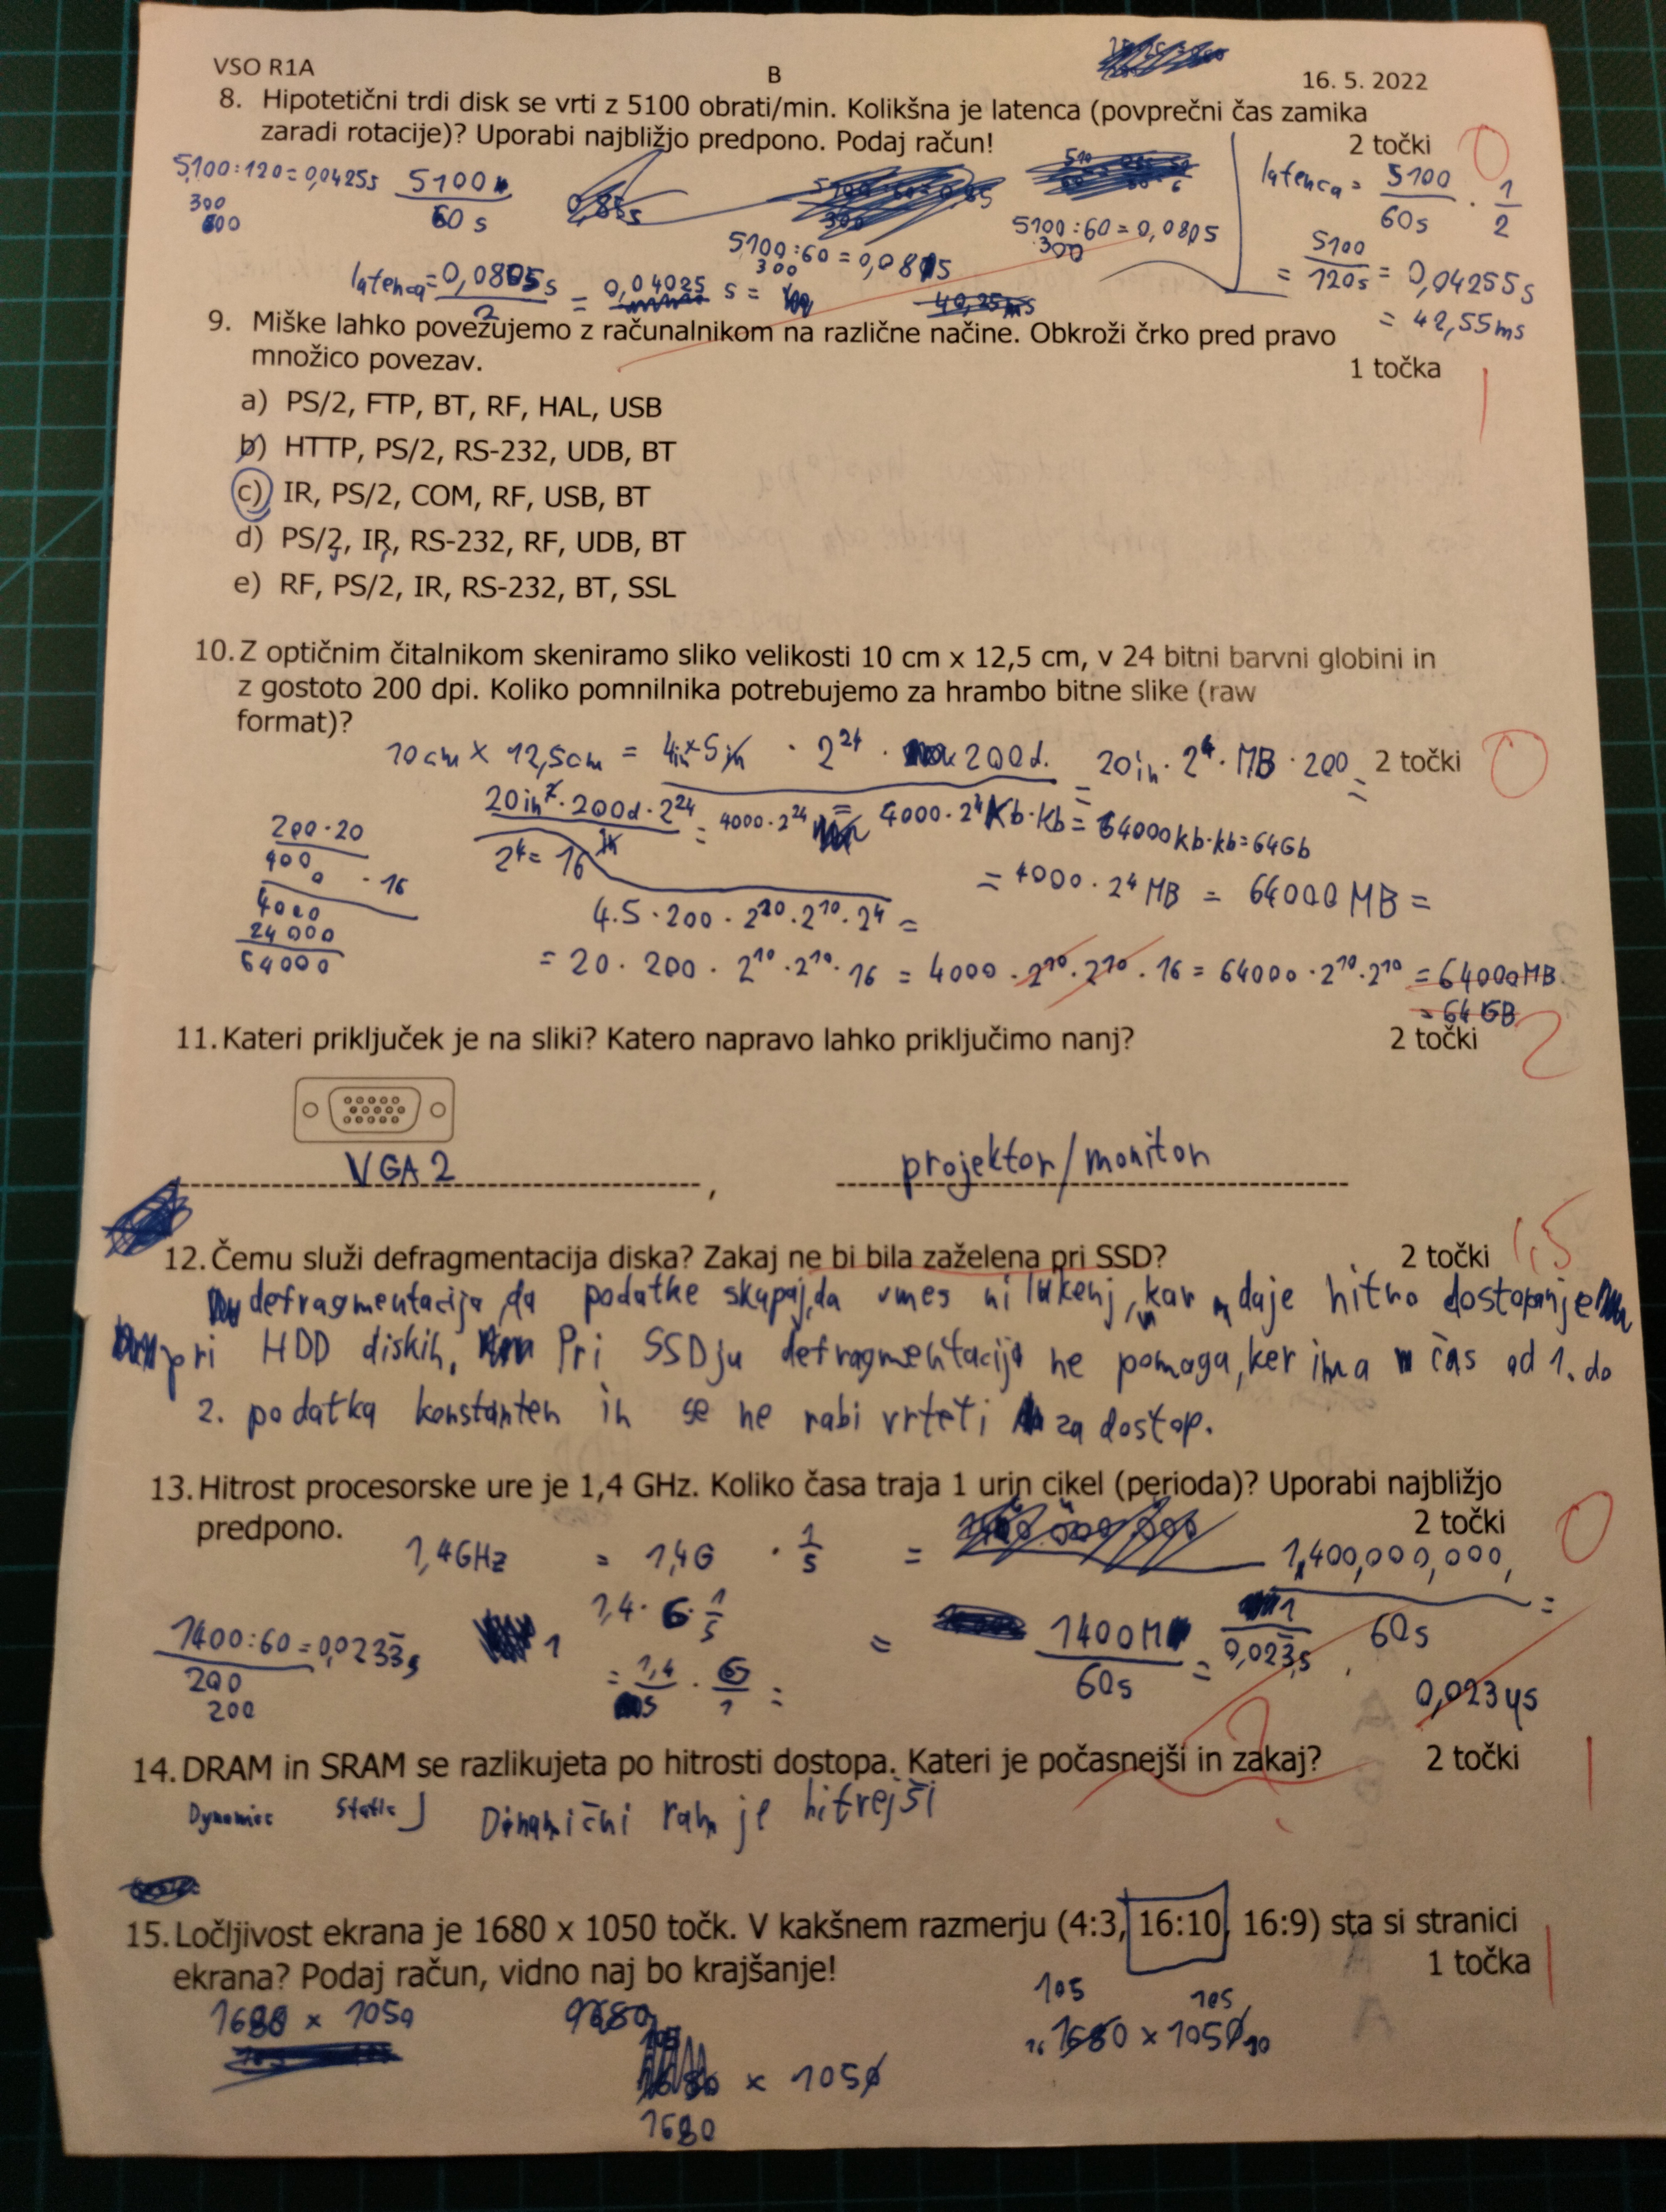 VSO R1A B 16. 5. 2022
8. Hipotetični trdi disk se vrti z 5100 obrati/min. Kolikšna je latenca (povprečni čas zamika
zaradi rotacije)? Uporabi najbližjo predpono. Podaj račun! 2 točki 0
5100:120=0,0425s
300
600
5100
60 s
0,85s
5100:60=0,0805
300
5100:60=0,0815
300
latenca = 5100/60s · 1/2
= 5100/120s = 0,04255s
= 42,55ms
latenca = 0,0805s/2 = 0,04025 s =
40,25ms
9. Miške lahko povezujemo z računalnikom na različne načine. Obkroži črko pred pravo
množico povezav. 1 točka 1
a) PS/2, FTP, BT, RF, HAL, USB
b) HTTP, PS/2, RS-232, UDB, BT
c) IR, PS/2, COM, RF, USB, BT
d) PS/2, IR, RS-232, RF, UDB, BT
e) RF, PS/2, IR, RS-232, BT, SSL
10. Z optičnim čitalnikom skeniramo sliko velikosti 10 cm x 12,5 cm, v 24 bitni barvni globini in
z gostoto 200 dpi. Koliko pomnilnika potrebujemo za hrambo bitne slike (raw
format)? 2 točki 0
10cm × 12,5cm = 4in×5in · 2^24 · 200d. = 20in · 2^4 · MB · 200 =
20in² · 200d · 2^24 = 4000 · 2^24 = 4000 · 2^4 Kb·Kb = 64000kb·kb = 64Gb
2^4 = 16
= 4000 · 2^4 MB = 64000 MB =
200·20
400
0 · 16
4000
24000
64000
4·5·200·2^10·2^10·2^4 =
= 20 · 200 · 2^10 · 2^10 · 16 = 4000 · 2^10 · 2^10 · 16 = 64000 · 2^10 · 2^10 = 64000MB
= 64GB
11. Kateri priključek je na sliki? Katero napravo lahko priključimo nanj? 2 točki 2
VGA 2 , projektor/monitor
12. Čemu služi defragmentacija diska? Zakaj ne bi bila zaželena pri SSD? 2 točki 1,5
defragmentacija da podatke skupaj, da vmes ni lukenj, kar daje hitro dostopanje
pri HDD diskih. Pri SSDju defragmentacija ne pomaga, ker ima čas od 1. do
2. podatka konstanten in se ne rabi vrteti za dostop.
13. Hitrost procesorske ure je 1,4 GHz. Koliko časa traja 1 urin cikel (perioda)? Uporabi najbližjo
predpono. 2 točki 0
1,4GHz = 1,4G · 1/s = 1,400,000,000, / 60s =
1,4 · G · 1/s
= 1,4/s · G/1 =
= 1400M/60s = 1/0,023s
1400:60=0,0233s
200
200
0,023µs
14. DRAM in SRAM se razlikujeta po hitrosti dostopa. Kateri je počasnejši in zakaj? 2 točki 1
Dynamic Static Dinamični ram je hitrejši
15. Ločljivost ekrana je 1680 x 1050 točk. V kakšnem razmerju (4:3, 16:10, 16:9) sta si stranici
ekrana? Podaj račun, vidno naj bo krajšanje! 1 točka 1
1680 × 1050
1680
105 105
16 1680 × 1050 10
1680 × 1050
1680